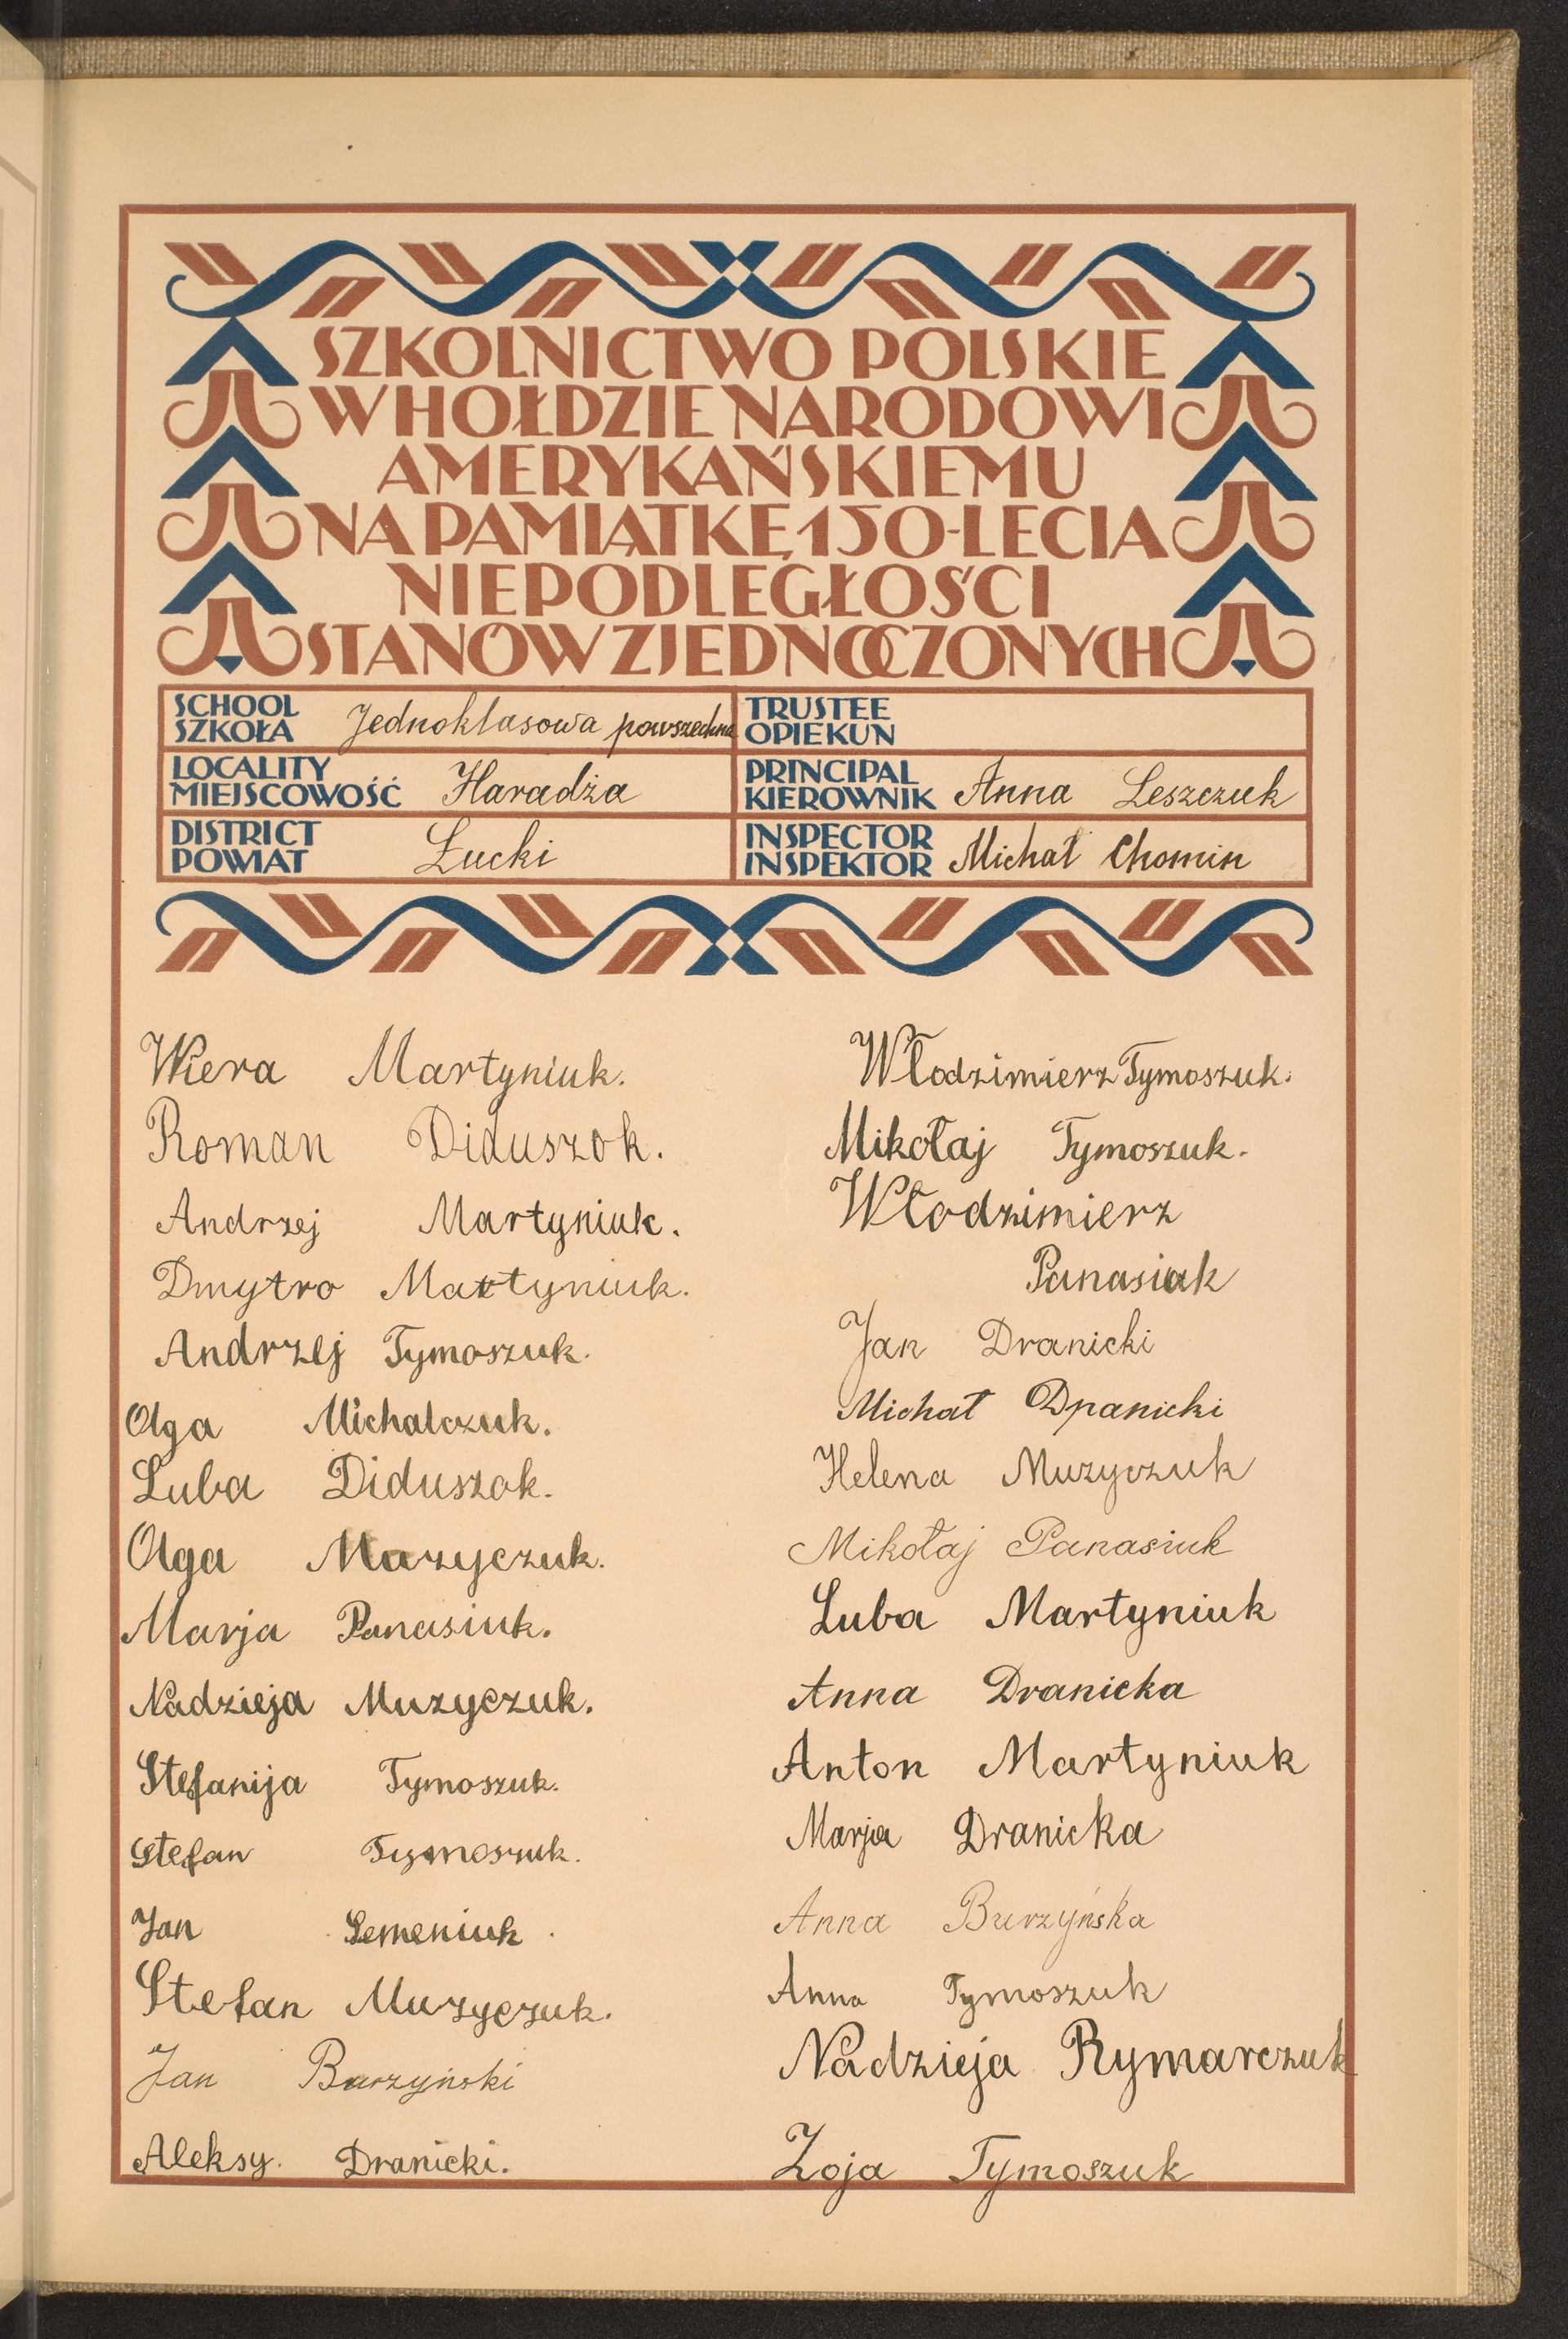 SZKOLNICTWO POLSKIE
W HOŁDZIE NARODOWI
AMERYKAŃSKIEMU
NA PAMIĄTKĘ 150-LECIA
NIEPODLEGŁOŚCI
STANÓW ZJEDNOCZONYCH
SCHOOL
SZKOŁA Jednoklasowa powszechna
TRUSTEE
OPIEKUN
LOCALITY
MIEJSCOWOŚĆ Haradża
PRINCIPAL
KIEROWNIK Anna Leszczuk
DISTRICT
POWIAT Łucki
INSPECTOR
INSPEKTOR Michał Chomin
Wiera Martyniuk.
Roman Diduszok.
Andrzej Martyniuk.
Dmytro Martyniuk.
Andrzej Tymoszuk.
Olga Michalczuk.
Luba Diduszok.
Olga Muzyczuk.
Marja Panasiuk.
Nadzieja Muzyczuk.
Stefanija Tymoszuk.
Stefan Tymoszuk.
Jan Semeniuk.
Stefan Muzyczuk.
Jan Burzyński
Aleksy. Dranicki.
Włodzimierz Tymoszuk.
Mikołaj Tymoszuk.
Włodzimierz
Panasiuk
Jan Dranicki
Michał Dpanicki
Helena Muzyczuk
Mikołaj Panasiuk
Luba Martyniuk
Anna Dranicka
Anton Martyniuk
Marja Dranicka
Anna Burzyńska
Anna Tymoszuk
Nadzieja Rymarczuk
Zoja Tymoszuk